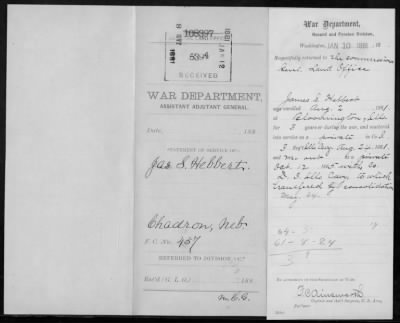 108397
JAN 8 1891
JAN 12 1891
RECEIVED
WAR DEPARTMENT,
ASSISTANT ADJUTANT GENERAL.
Date, 188
STATEMENT OF SERVICE OF
Jas S. Hebbert.
Chadron, Neb.
F. C. No. 437
REFERRED TO DIVISION
Rec'd (G. L. O.) 188
War Department,
Record and Pension Division,
Washington, JAN 10 1891, 18
Respectfully returned to the Commissioner
Genl. Land Office
James S. Hebbert
Aug 2, 1861
at Bloomington, Ills
for 3 years or during the war, and mustered
into service as a private in Co. I
3 Ills Cav, Aug. 24, 1861,
and m. out as private
Oct. 12, 1865 with Co.
I. 3. Ills Cavy, to which
transferred by consolidation
61-8-24
3
F. C. Ainsworth
Captain and Ass't Surgeon, U. S. Army.